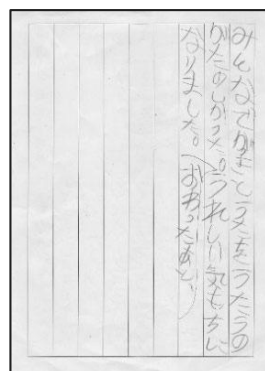 みんなで うたをうたうの
がたのしかった。うれしい気もちに
なりました。(おわったあと。)